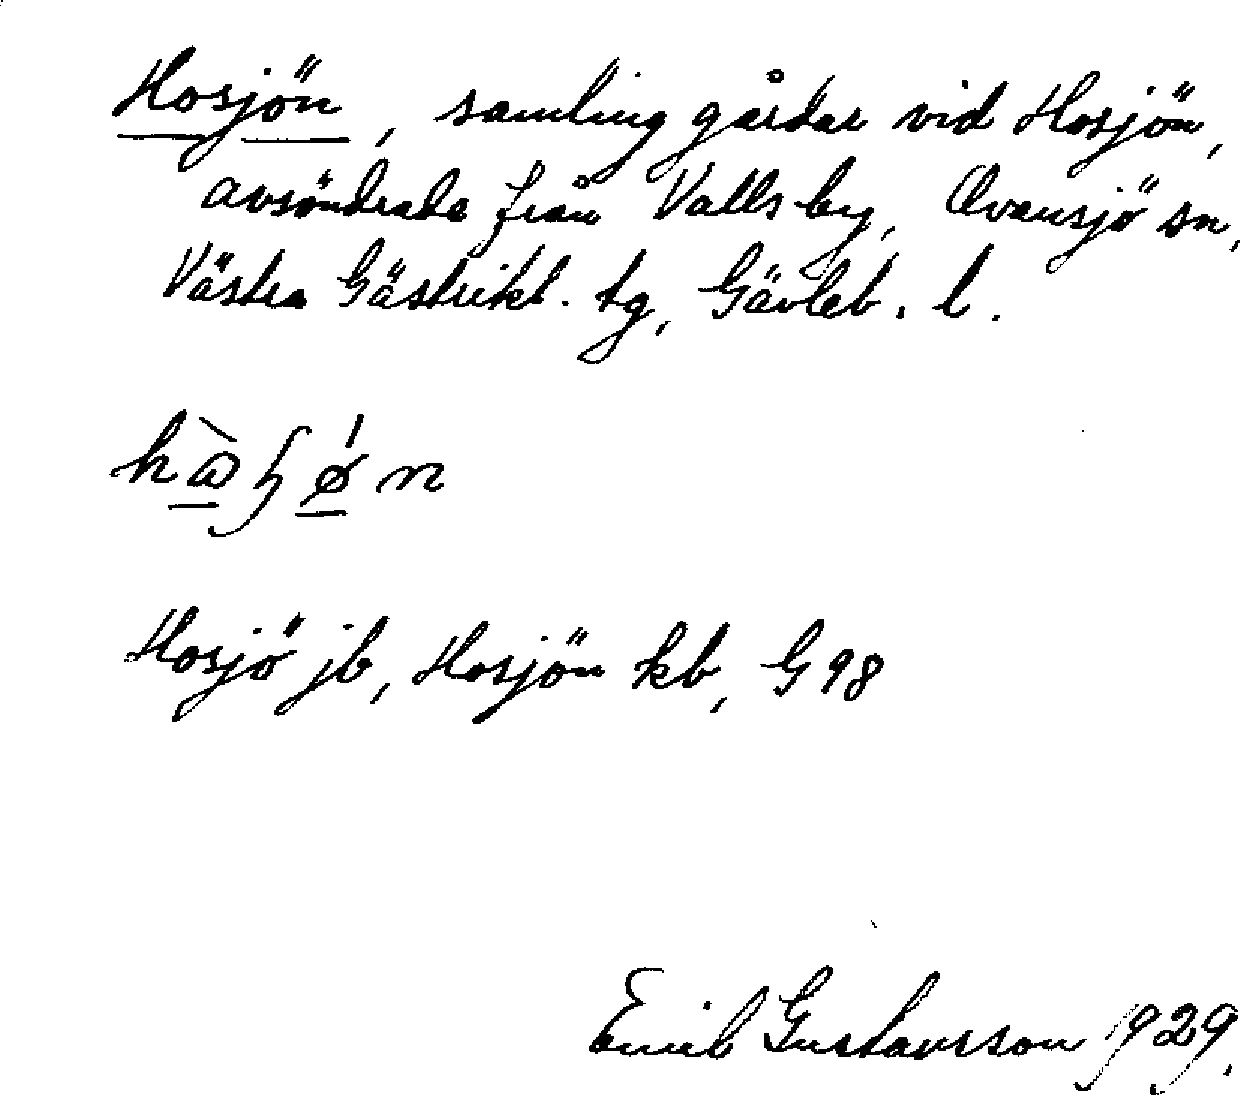 Hosjön, samling gårdar vid Hosjön,
avsöndrade från Valls by, Ovansjö sn,
Västra Gästrikl. tg, Gävleb. l.
Hosjö jb, Hosjön kb, G 98
Emil Gustavsson 1929.